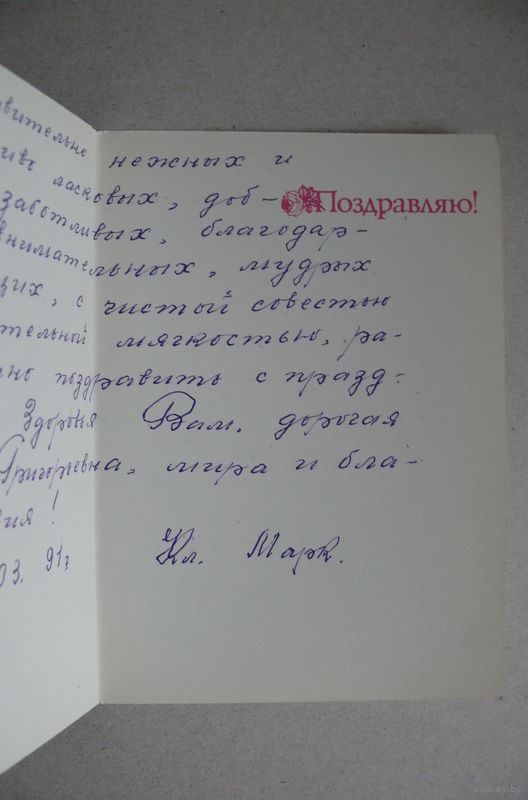 вительно нежных и
ласковых, доб-
Поздравляю!
заботливых, благодар-
внимательных, мудрых
щих, с чистой совестью
тельной мягкостью, ра-
сно поздравить с празд-
Здоровья Вам, дорогая
Григорьевна, мира и бла-
ия!
03. 91г
Кл. Марк.
www.ay.by